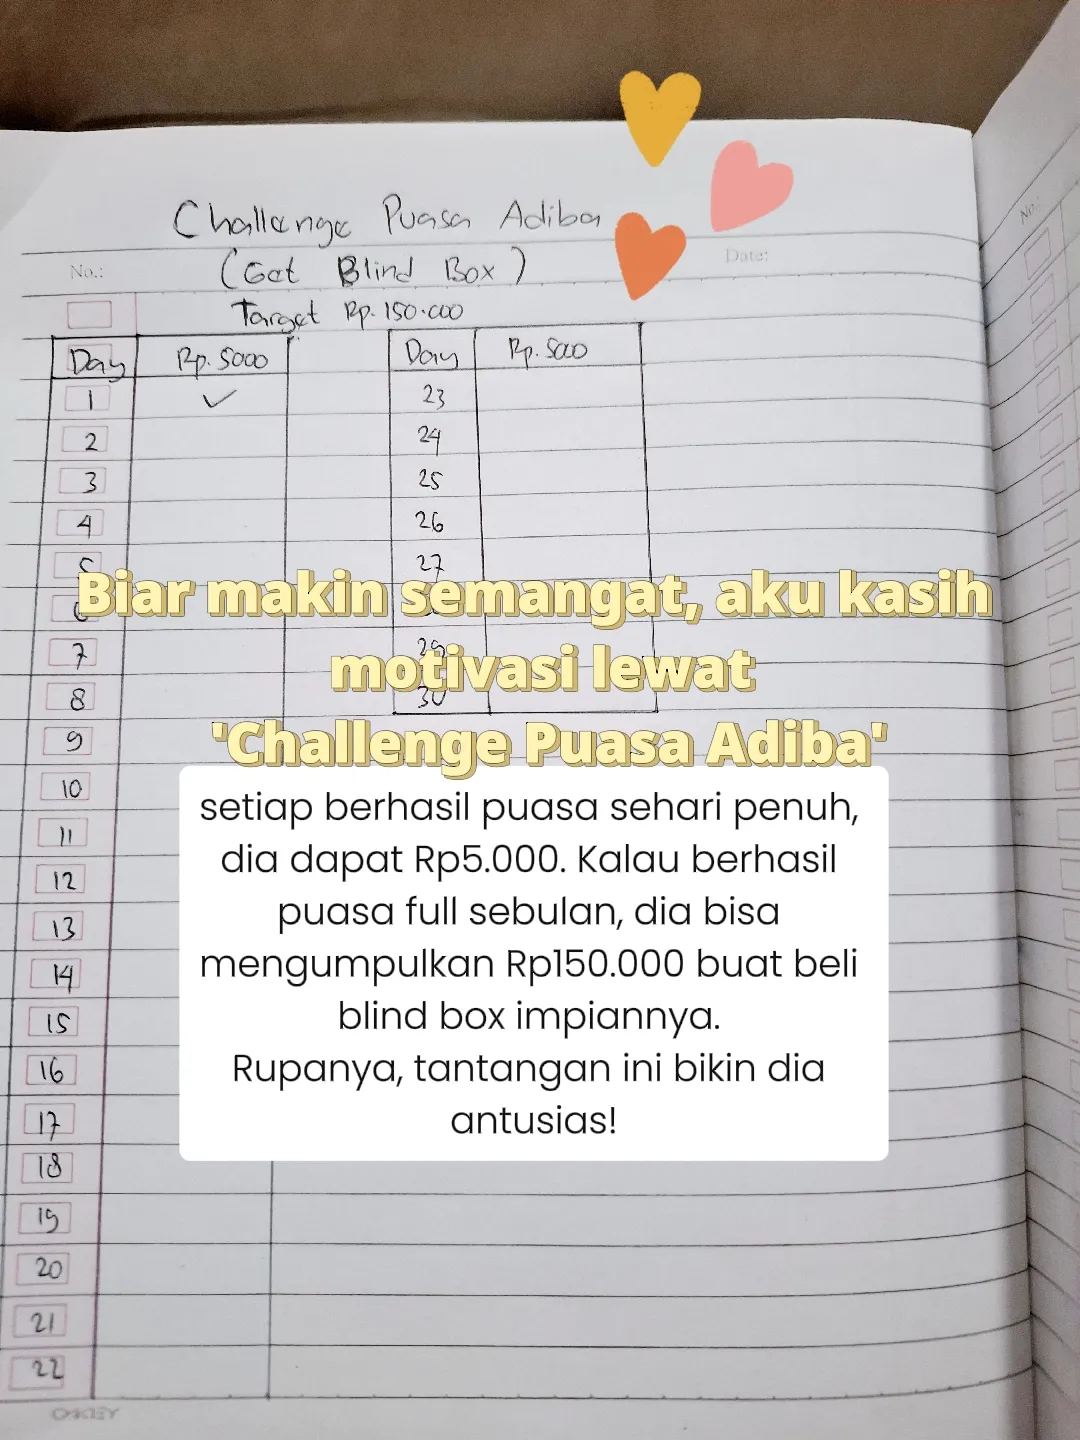 Challenge Puasa Adiba
No.:
(Get Blind Box)
Date:
No.:
Target Rp. 150.000
Day Rp. 5000 Day Rp. 5000
1 ✓ 23
2 24
3 25
4 26
5 27
6
7 29
8 30
9
10
11
12
13
14
15
16
17
18
19
20
21
22
Biar makin semangat, aku kasih
motivasi lewat
'Challenge Puasa Adiba'
setiap berhasil puasa sehari penuh,
dia dapat Rp5.000. Kalau berhasil
puasa full sebulan, dia bisa
mengumpulkan Rp150.000 buat beli
blind box impiannya.
Rupanya, tantangan ini bikin dia
antusias!
OAKLEY